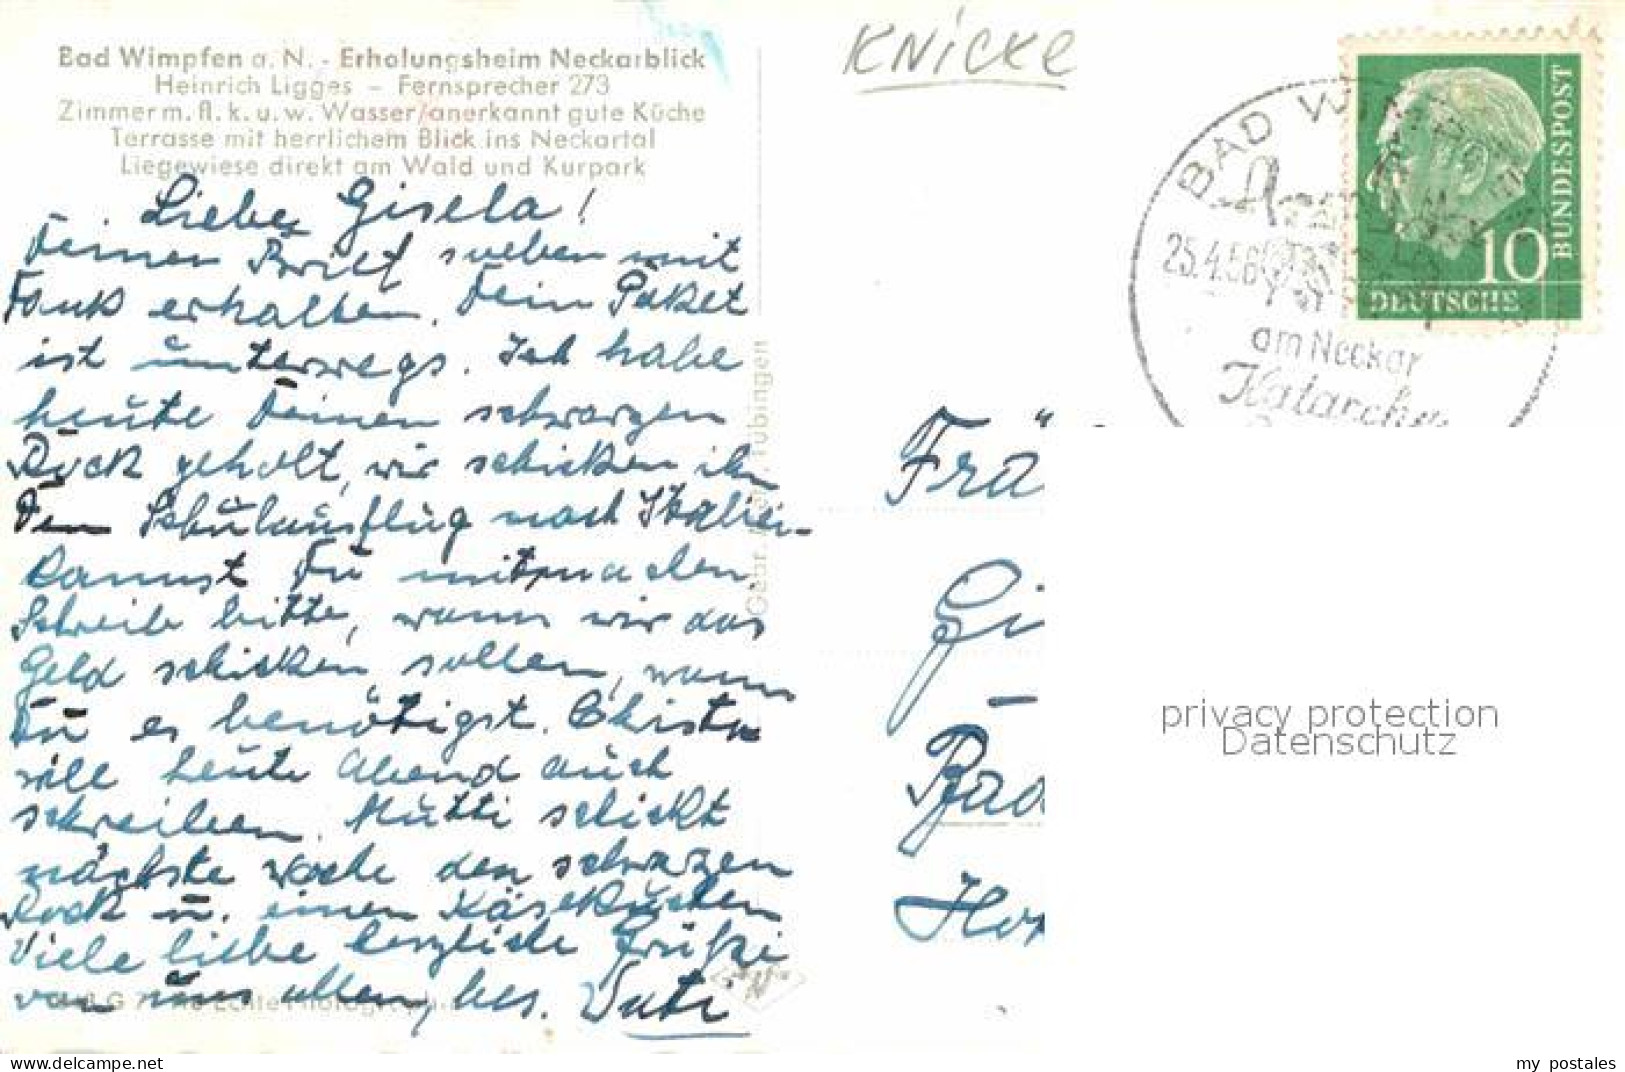 Bad Wimpfen a. N. - Erholungsheim Neckarblick
Heinrich Ligges – Fernsprecher 273
Zimmer m. fl. k. u. w. Wasser/anerkannt gute Küche
Terrasse mit herrlichem Blick ins Neckartal
Liegewiese direkt am Wald und Kurpark
Liebe Gisela!
Deinen Brief soeben mit
Dank erhalten. Dein Paket
ist unterwegs. Ich habe
heute Deinen schwarzen
Rock geholt, wir schicken ihn
Den Schulausflug nach Italien
kannst Du mitmachen.
Schreib bitte, wann wir das
Geld schicken sollen, wann
Du es benötigst. Christa
will heute Abend auch
schreiben. Mutti schickt
nächste Woche den schwarzen
Rock u. einen Käsekuchen
Viele liebe herzliche Grüße
von uns allen, bes. Vati
Tübingen
KNICKE
BAD WIMPFEN
25.4.56
am Neckar
Katarrhe
10
DEUTSCHE
BUNDESPOST
Frä
Gi
Bad
Ho
privacy protection
Datenschutz
my postales